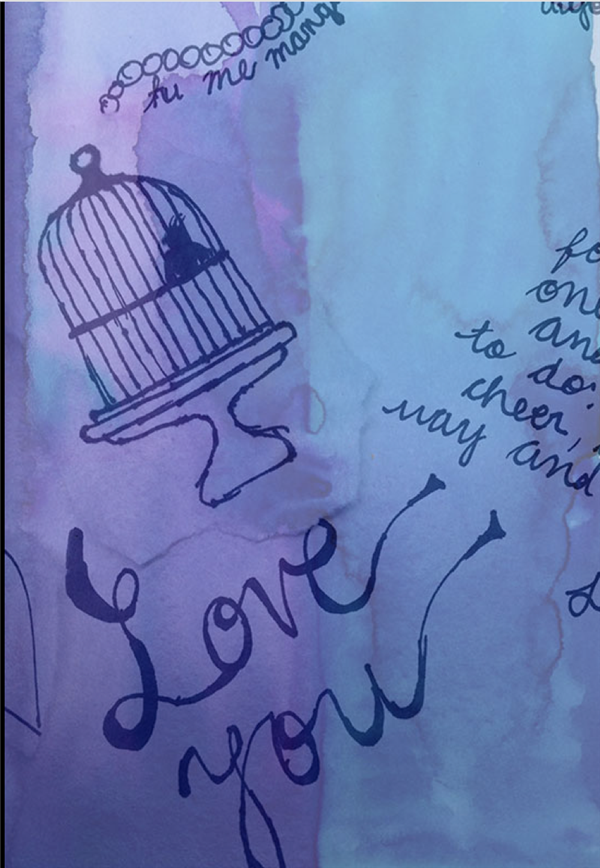 tu me manq
fo
one
and
to do:
cheer,
way and
Love
you